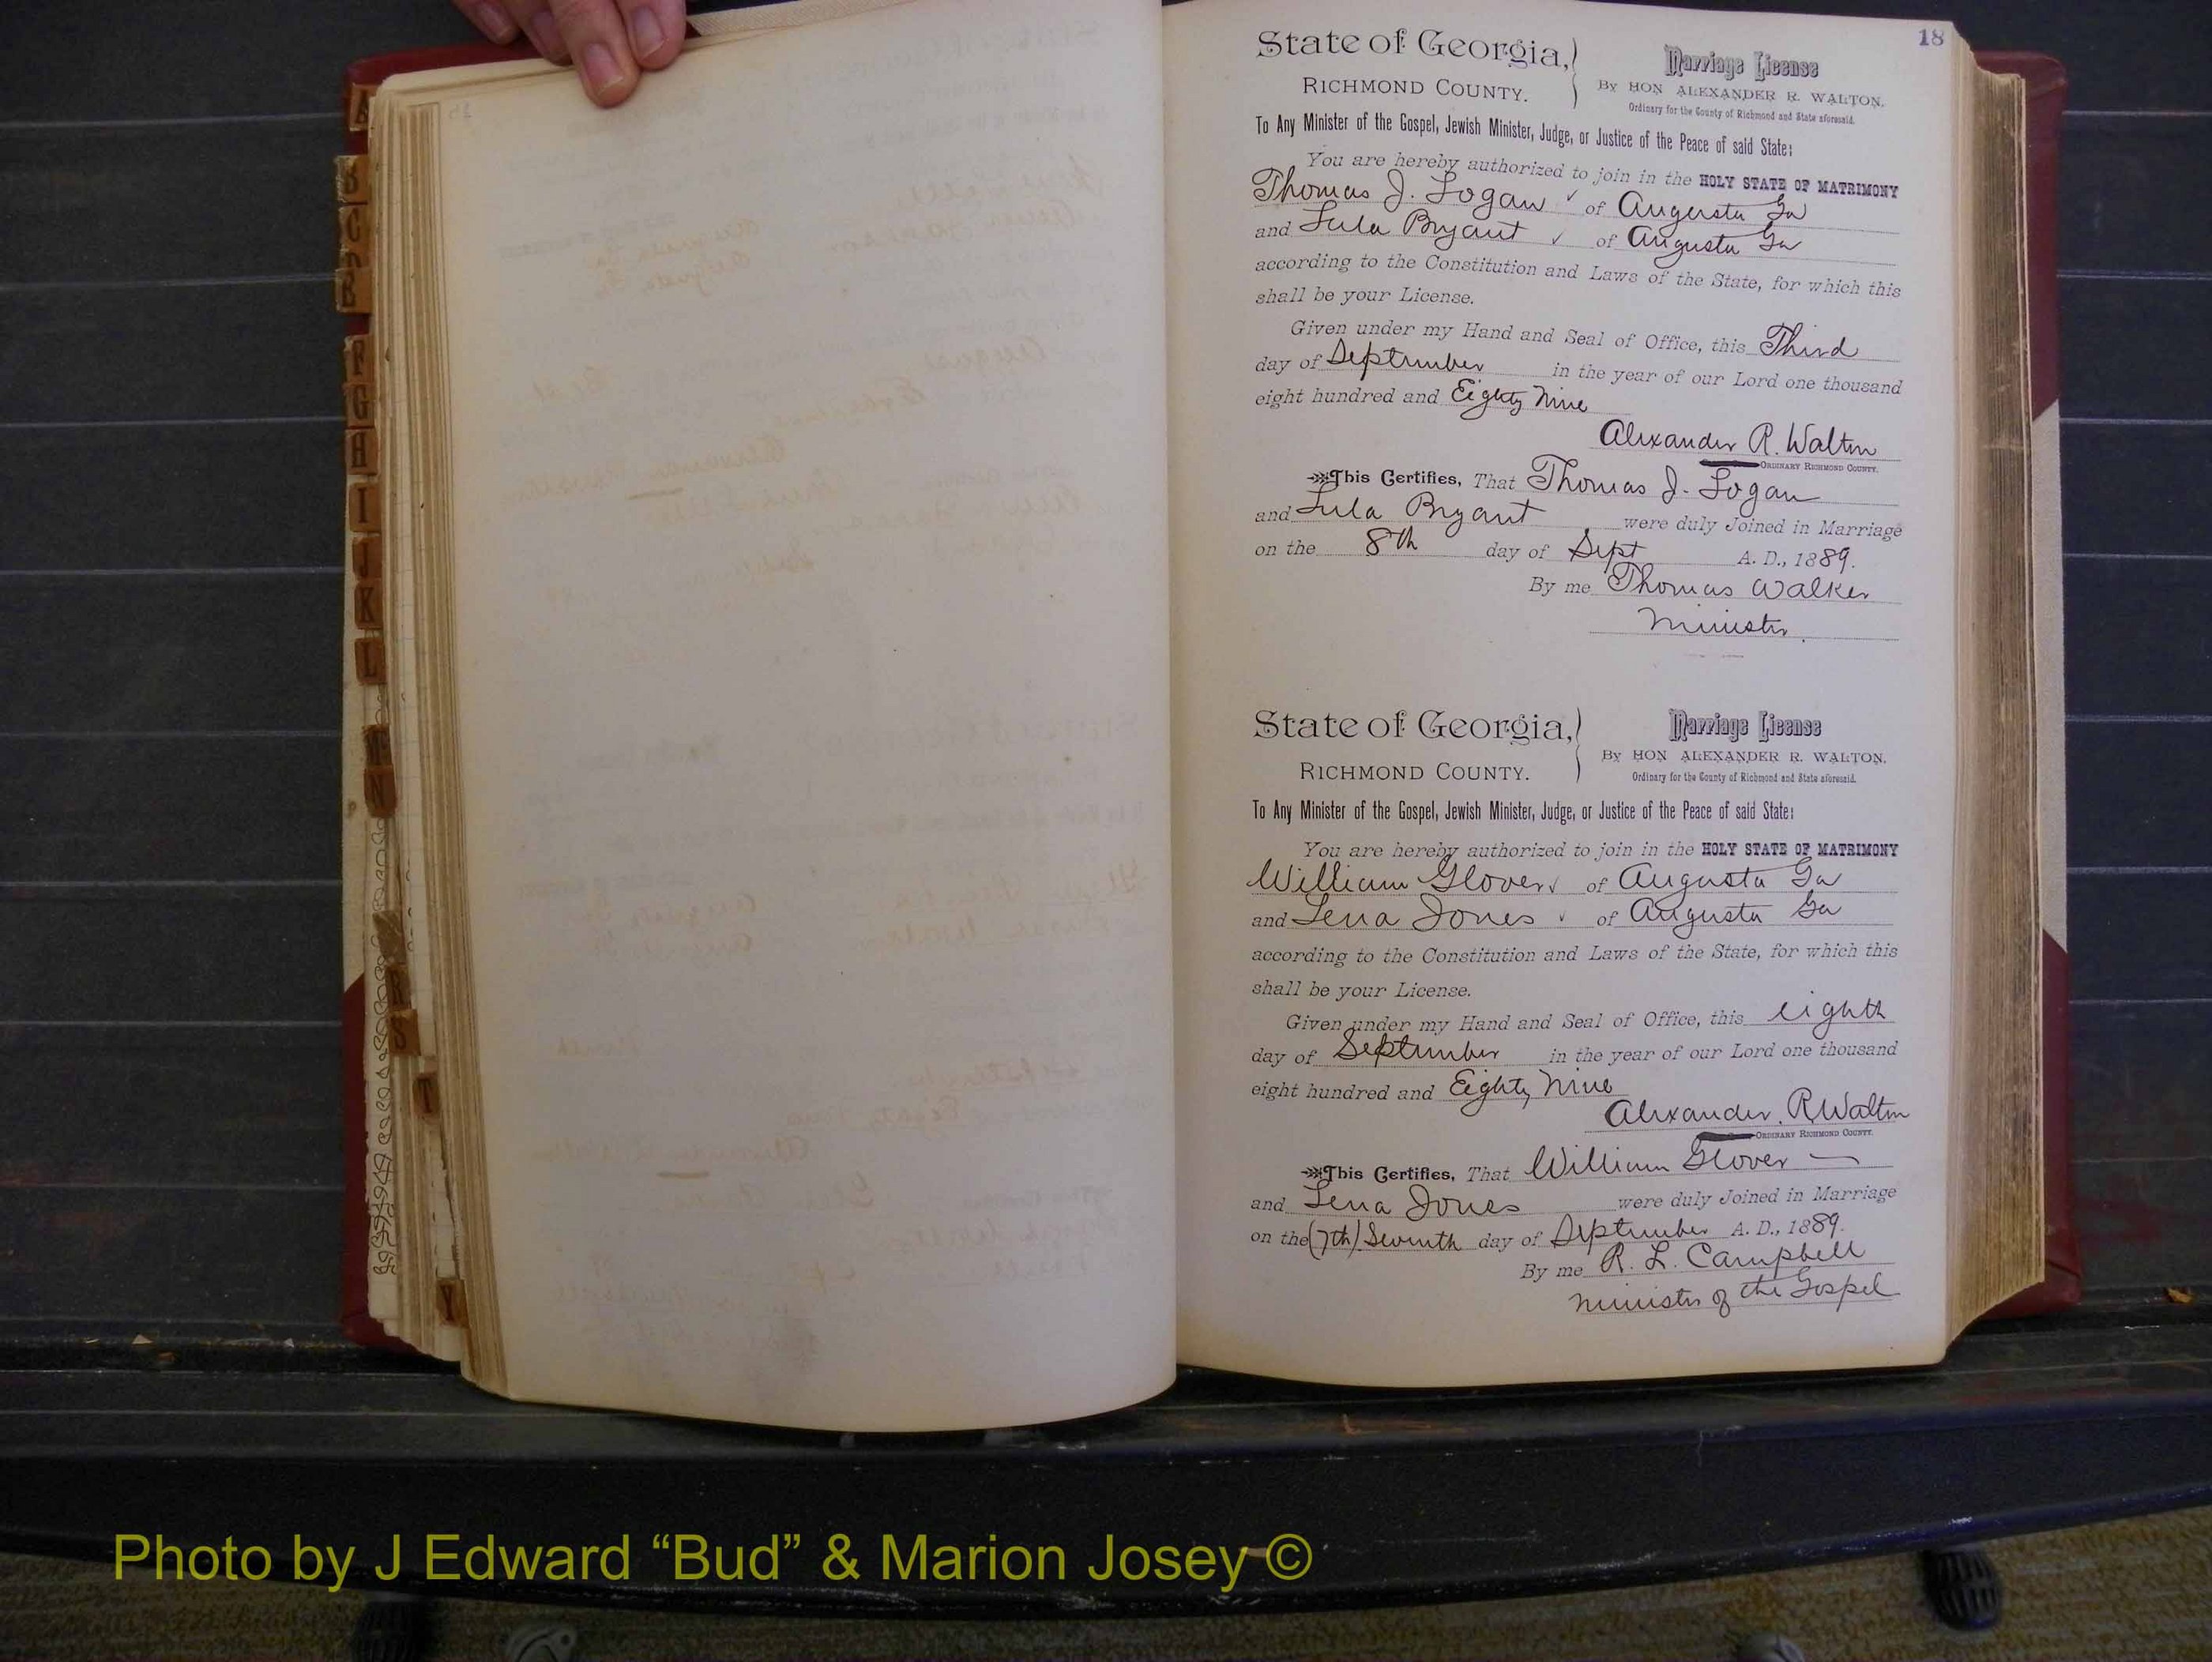 18
State of Georgia,
RICHMOND COUNTY.
Marriage License
By HON ALEXANDER R. WALTON,
Ordinary for the County of Richmond and State aforesaid.
To Any Minister of the Gospel, Jewish Minister, Judge, or Justice of the Peace of said State:
You are hereby authorized to join in the HOLY STATE OF MATRIMONY
Thomas J. Logan ✓ of Augusta Ga
and Lula Bryant ✓ of Augusta Ga
according to the Constitution and Laws of the State, for which this
shall be your License.
Given under my Hand and Seal of Office, this Third
day of September in the year of our Lord one thousand
eight hundred and Eighty Nine
Alexander R. Walton
ORDINARY RICHMOND COUNTY.
This Certifies, That Thomas J. Logan
and Lula Bryant were duly Joined in Marriage
on the 8th day of Sept A. D., 1889.
By me Thomas Walker
Minister.
State of Georgia,
RICHMOND COUNTY.
Marriage License
By HON ALEXANDER R. WALTON,
Ordinary for the County of Richmond and State aforesaid.
To Any Minister of the Gospel, Jewish Minister, Judge, or Justice of the Peace of said State:
You are hereby authorized to join in the HOLY STATE OF MATRIMONY
William Glover ✓ of Augusta Ga
and Lena Jones ✓ of Augusta Ga
according to the Constitution and Laws of the State, for which this
shall be your License.
Given under my Hand and Seal of Office, this eighth
day of September in the year of our Lord one thousand
eight hundred and Eighty Nine
Alexander. R Walton
ORDINARY RICHMOND COUNTY.
This Certifies, That William Glover —
and Lena Jones were duly Joined in Marriage
on the (7th) Seventh day of September A. D., 1889.
By me R. L. Campbell
minister of the Gospel
A
B
C
F
G
H
I
J
K
L
N
R
S
T
Y
Photo by J Edward “Bud” & Marion Josey ©